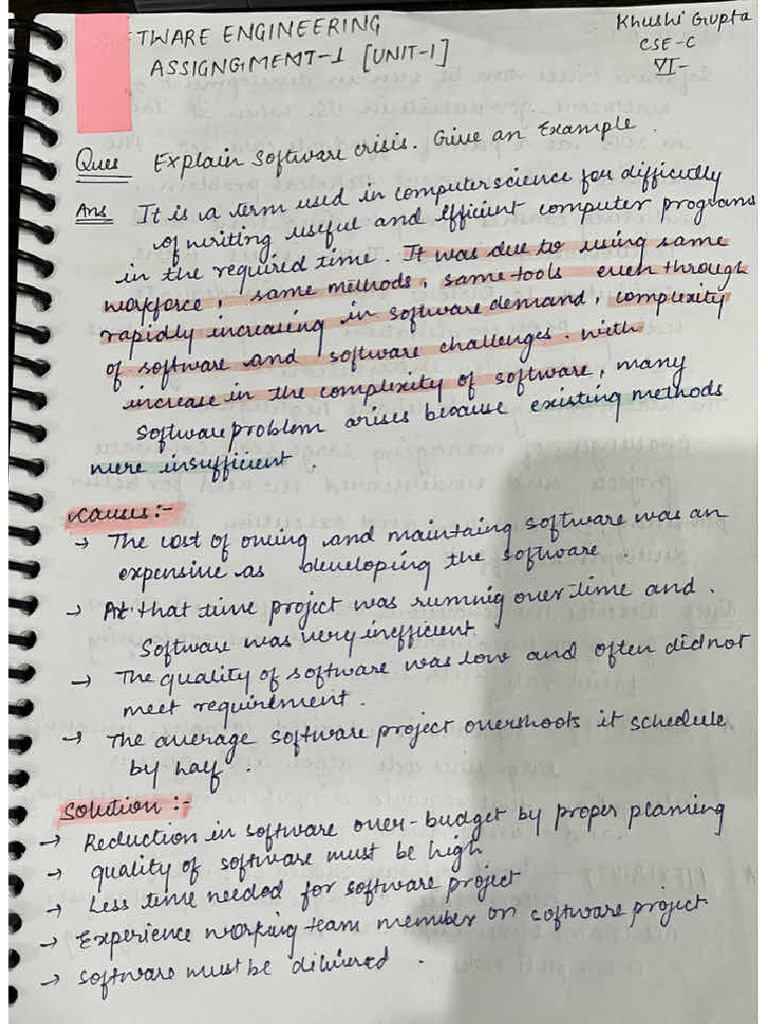 FTWARE ENGINEERING
ASSIGNGMENT-1 [UNIT-I]
Khushi Gupta
CSE-C
VI-
Ques Explain Software crisis. Give an Example.
Ans It is a term used in computer science for difficulty
of writing useful and efficient computer programs
in the required time. It was due to using same
workforce, same methods, same tools even through
rapidly increasing in software demand, complexity
of software and software challenges. with
increase in the complexity of software, many
Software problem arises because existing methods
were insufficient.
Causes:-
→ The cost of owing and maintaing software was an
expensive as developing the software.
→ At that time project was running over time and.
Software was very inefficient.
→ The quality of software was low and often did not
meet requirement.
→ The average software project overshoots it schedule
by half.
Solution:-
→ Reduction in software over-budget by proper planning
→ quality of software must be high
→ Less time needed for software project
→ Experience working team member on software project
→ Software must be dilivired.